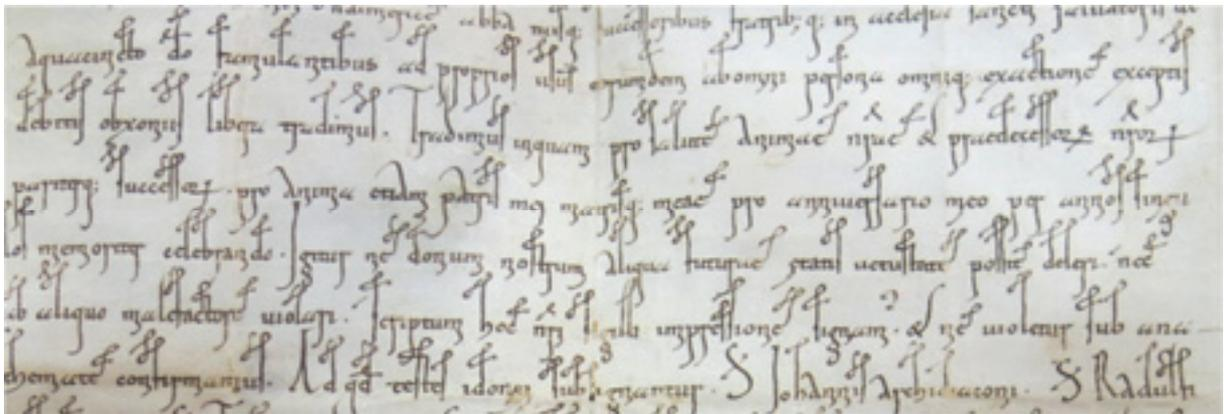 abba
Aquacincto do famulantibus ad proprios usus eiusdem ab omni persona omniq; exactione exceptis
debitis obxoniis libera tradimus. Tradimus inquam pro salute animae nrae & praedecessor nror
pariterq; successor. pro anima etiam patris mei matrisq; meae pro anniversario meo per annos singu
los memoriter celebrando. Igitur ne donum nostrum aliqua futurae etatis uetustate possit deleri. nec
ab aliquo malefactore uiolari. Scriptum hoc nri sigilli impressione signam. & ne uioletur sub ana
themate confirmamus. Ad qd testes idonei subsignantur. S Johannis archidiaconi. S Radulfi